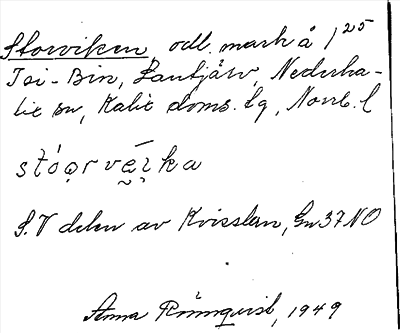 Storviken, odl. mark å 1²⁵
Toi-Bin, Lantjärv, Nederka-
lix sn, Kalix doms. lg, Norrb. l
stóo̥r vḗi̯ka
S.V delen av Kvisslan, Gn 37 NO
Anna Rönnquist, 1949